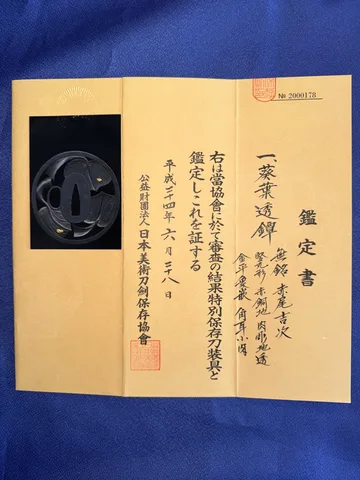 № 2000178
鑑定書
一、葵葉透鐔
無銘 赤尾吉次
竪丸形 赤銅地 肉彫地透
金平象嵌 角耳小肉
右は當協會に於て審査の結果特別保存刀装具と
鑑定しこれを証する
平成二十四年六月二十八日
公益財團法人 日本美術刀劍保存協會